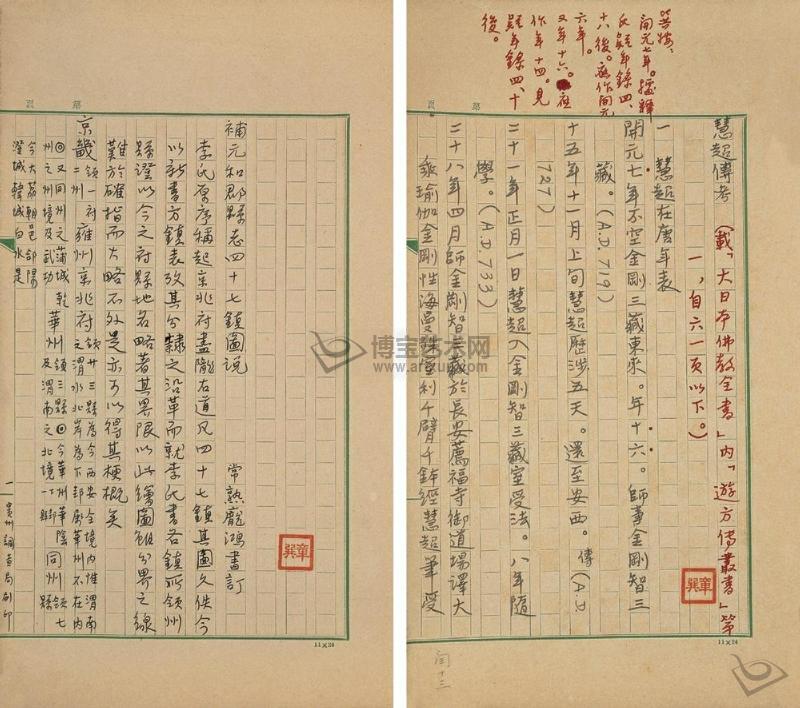 等按、
開元七年。據釋
氏疑年錄四、
十八後。應作開元
六年。
又年十六。應
作年十四。見
疑年錄四、十
後。
慧超傳考(載「大日本佛教全書」內「遊方傳叢書」第
一,自六一頁以下。)
一 慧超在唐年表
開元七年不空金剛三藏東來。年十六。師事金剛智三
藏。(A.D.719)
十五年十一月上旬慧超歷涉五天。還至安西。傳(A.D.
727)
二十一年正月一日慧超入金剛智三藏室受法。八年隨
學。(A.D.733)
二十八年四月師金剛智三藏於長安薦福寺御道場譯大
乘瑜伽金剛性海曼殊室利千臂千鉢經慧超筆受
11×24
補元和郡縣志四十七鎮圖說
常熟龐鴻書訂
李氏原序稱起京兆府盡隴右道凡四十七鎮其圖久佚今
以新書方鎮表攷其分隸之沿革而就李氏書各鎮所領州
縣證以今之府縣地名略著其界限以此繪圖雖分界之線
難於確指而大略不外是亦可以得其梗概矣
京畿領一府二州
雍州京兆府領廿三縣為今西安全境內惟渭南
之渭水北岸為下邽厥華州不在內
又同州之蒲城乾
州之州境及武功
華州領三縣今華州華陰
及渭南之北境
同州領七縣
今大荔朝邑郃陽
澄城韓城白水是
一 貴州調查局刷印
11×24
章巽
章巽
博宝艺术网
www.artxun.com